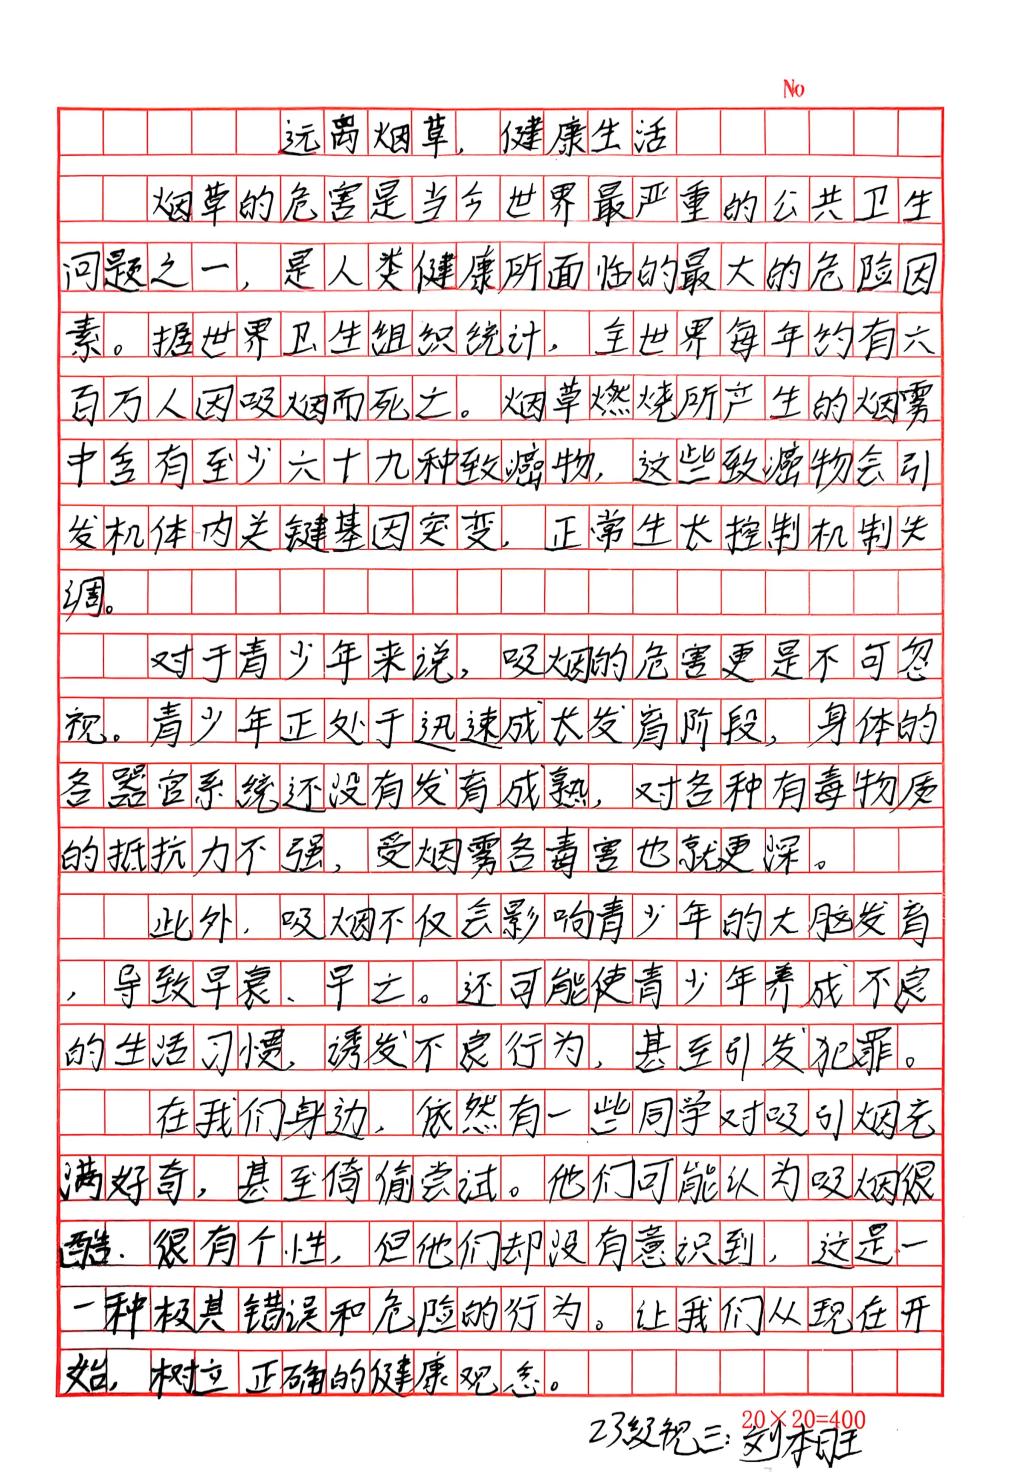 No
远离烟草，健康生活
烟草的危害是当今世界最严重的公共卫生
问题之一，是人类健康所面临的最大的危险因
素。据世界卫生组织统计，全世界每年约有六
百万人因吸烟而死亡。烟草燃烧所产生的烟雾
中含有至少六十九种致癌物，这些致癌物会引
发机体内关键基因突变，正常生长控制机制失
调。
对于青少年来说，吸烟的危害更是不可忽
视。青少年正处于迅速成长发育阶段，身体的
各器官系统还没有发育成熟，对各种有毒物质
的抵抗力不强，受烟雾各毒害也就更深。
此外，吸烟不仅会影响青少年的大脑发育
，导致早衰、早亡。还可能使青少年养成不良
的生活习惯，诱发不良行为，甚至引发犯罪。
在我们身边，依然有一些同学对吸引烟充
满好奇，甚至倚偷尝试。他们可能认为吸烟很
酷、很有个性，但他们却没有意识到，这是一
一种极其错误和危险的行为。让我们从现在开
始，树立正确的健康观念。
20×20=400
23级视三：刘本旺